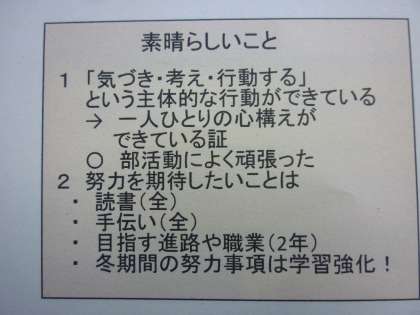 素晴らしいこと
1 「気づき・考え・行動する」
という主体的な行動ができている
→ 一人ひとりの心構えが
できている証
○ 部活動によく頑張った
2 努力を期待したいことは
・ 読書(全)
・ 手伝い(全)
・ 目指す進路や職業(2年)
・ 冬期間の努力事項は学習強化!